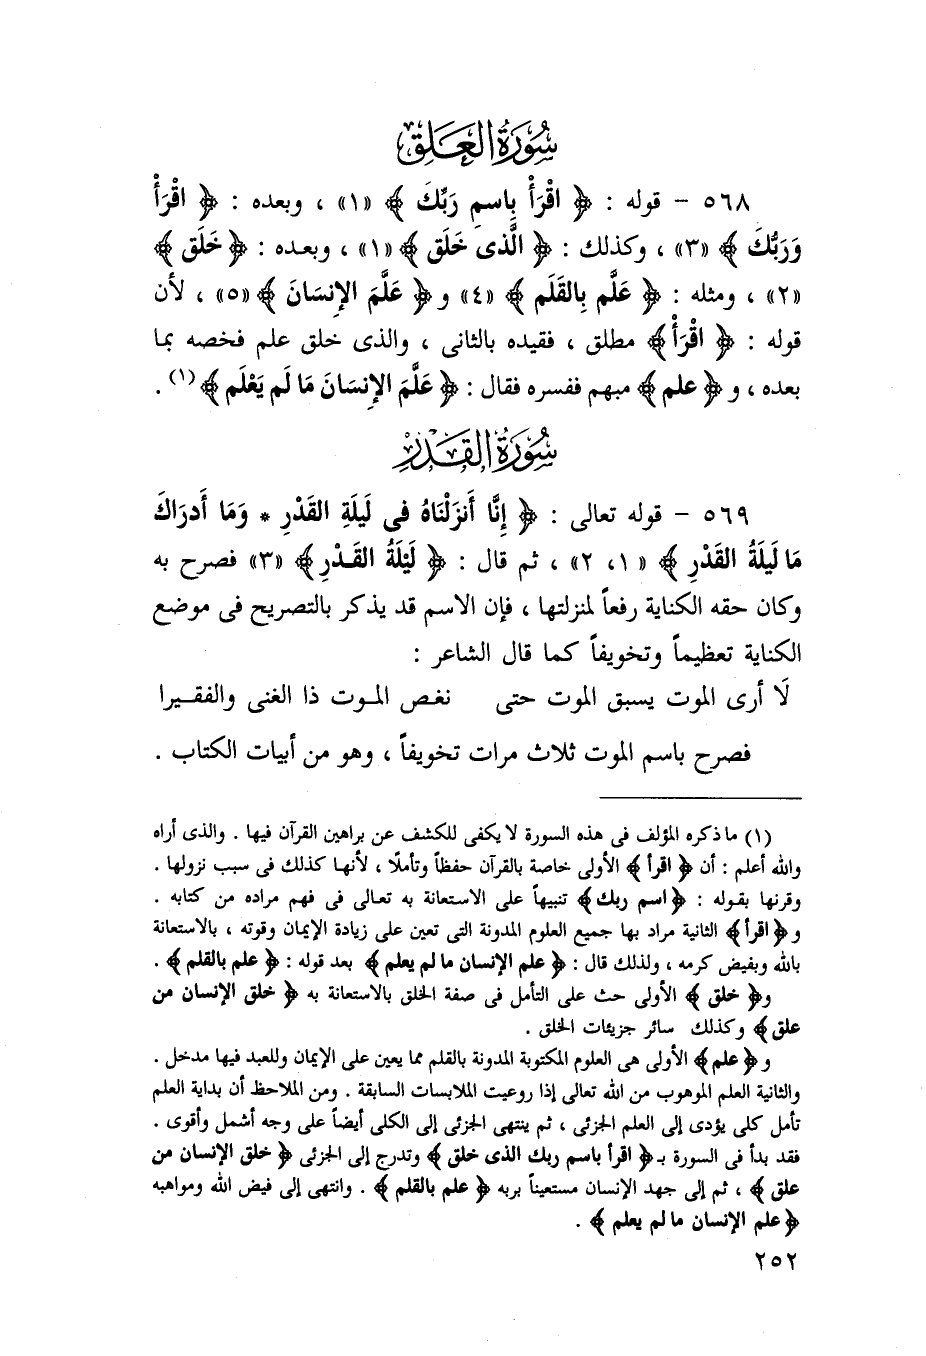 سُورَةُ العَلق
٥٦٨ – قوله : ﴿ اقْرَأْ بِاسمِ رَبِّكَ ﴾ «١» ، وبعده : ﴿ اقْرَأْ
وَرَبُّكَ ﴾ «٣» ، وكذلك : ﴿ الَّذى خَلَق ﴾ «١» ، وبعده : ﴿ خَلَق ﴾
«٢» ، ومثله : ﴿ عَلَّم بِالقَلَم ﴾ «٤» و﴿ عَلَّمَ الإِنسَانَ ﴾ «٥» ، لأن
قوله : ﴿ اقْرَأْ ﴾ مطلق ، فقيده بالثانى ، والذى خلق علم فخصه بما
بعده ، و ﴿ علم ﴾ مبهم ففسره فقال : ﴿ عَلَّمَ الإِنسَانَ مَا لَم يَعْلَم ﴾ (١) .
سُورَةُ القَدْر
٥٦٩ – قوله تعالى : ﴿ إِنَّا أَنزَلْنَاهُ فى لَيلَةِ القَدْرِ * وَمَا أَدرَاكَ
مَا لَيلَةُ القَدْرِ ﴾ «١، ٢» ، ثم قال : ﴿ لَيْلَةُ القَـدْرِ ﴾ «٣» فصرح به
وكان حقه الكناية رفعاً لمنزلتها ، فإن الاسم قد يذكر بالتصريح فى موضع
الكناية تعظيماً وتخويفاً كما قال الشاعر :
لَا أرى الموت يسبق الموت حتى نغص المـوت ذا الغنى والفقـيرا
فصرح باسم الموت ثلاث مرات تخويفاً ، وهو من أبيات الكتاب .
(١) ما ذكره المؤلف فى هذه السورة لا يكفى للكشف عن براهين القرآن فيها . والذى أراه
والله أعلم : أن ﴿ اقرأ ﴾ الأولى خاصة بالقرآن حفظاً وتأملًا ، لأنهـا كذلك فى سبب نزولها .
وقرنها بقـوله : ﴿ اسم ربك ﴾ تنبيهاً على الاستعانة به تعـالى فى فهم مراده من كتابه .
و﴿ اقرأ ﴾ الثانية مراد بها جميع العلوم المدونة التى تعين على زيادة الإيمان وقوته ، بالاستعانة
بالله وبفيض كرمه ، ولذلك قال : ﴿ علم الإنسان ما لم يعلم ﴾ بعد قوله : ﴿ علم بالقلم ﴾ .
و﴿ خلق ﴾ الأولى حث على التأمل فى صفة الخلق بالاستعانة به ﴿ خلق الإنسان من
علق ﴾ وكذلك سائر جزيئات الخلق .
و﴿ علم ﴾ الأولى هى العلوم المكتوبة المدونة بالقلم مما يعين على الإيمان وللعبد فيها مدخل .
والثانية العلم الموهوب من الله تعالى إذا روعيت الملابسات السابقة . ومن الملاحظ أن بداية العلم
تأمل كلى يؤدى إلى العلم الجزئى ، ثم ينتهى الجزئى إلى الكلى أيضاً على وجه أشمل وأقوى .
فقد بدأ فى السورة بـ﴿ اقرأ باسم ربك الذى خلق ﴾ وتدرج إلى الجزئى ﴿ خلق الإنسان من
علق ﴾ ، ثم إلى جهد الإنسان مستعيناً بربه ﴿ علم بالقلم ﴾ . وانتهى إلى فيض الله ومواهبه
﴿ علم الإنسان ما لم يعلم ﴾ .
٢٥٢